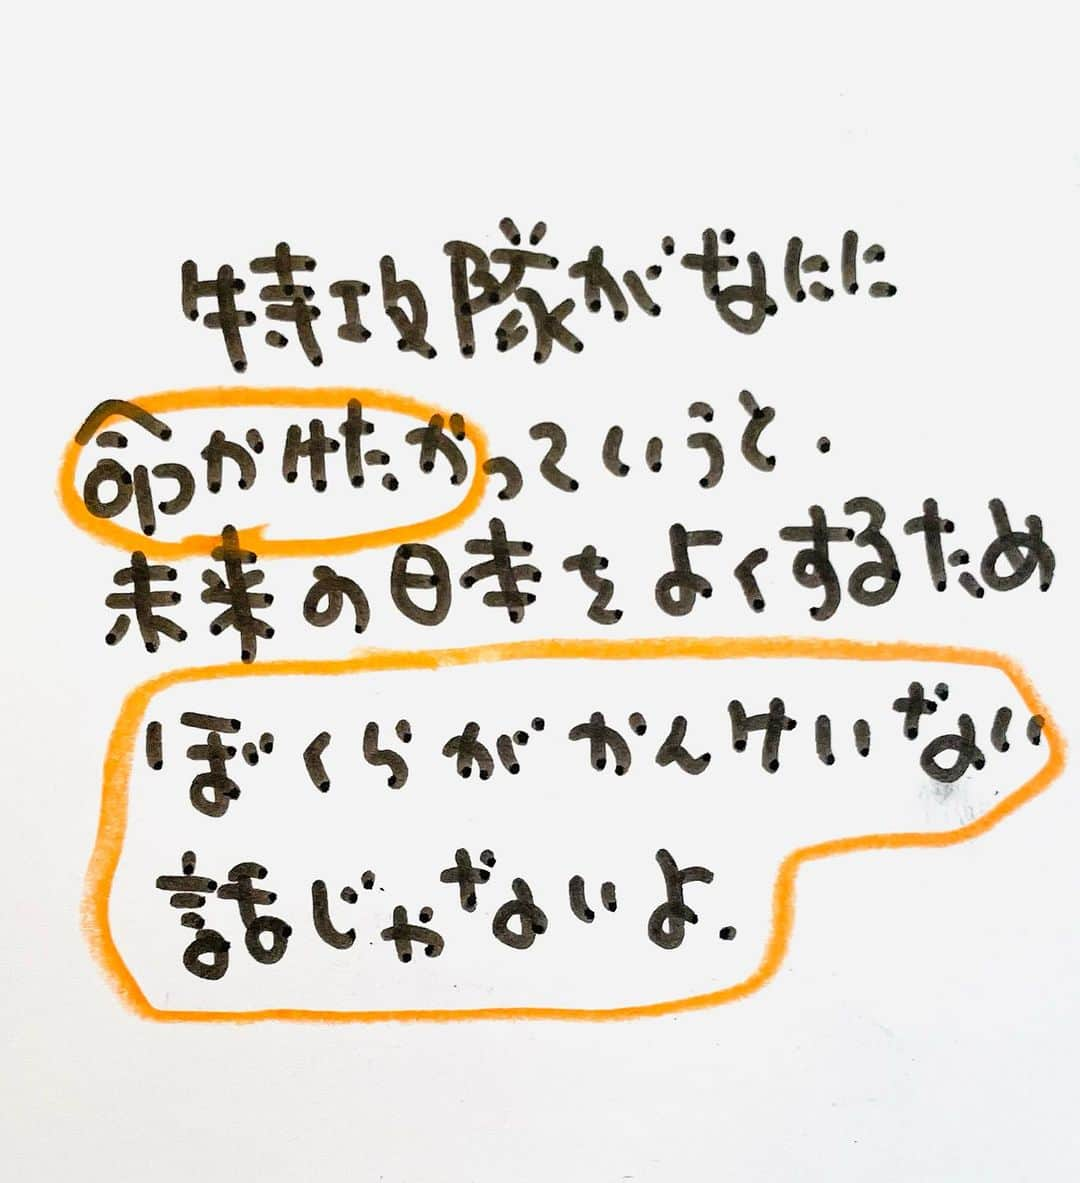 特攻隊がなにに
命かけたかっていうと.
未来の日本をよくするため
ぼくらがかんけいない
話じゃないよ.